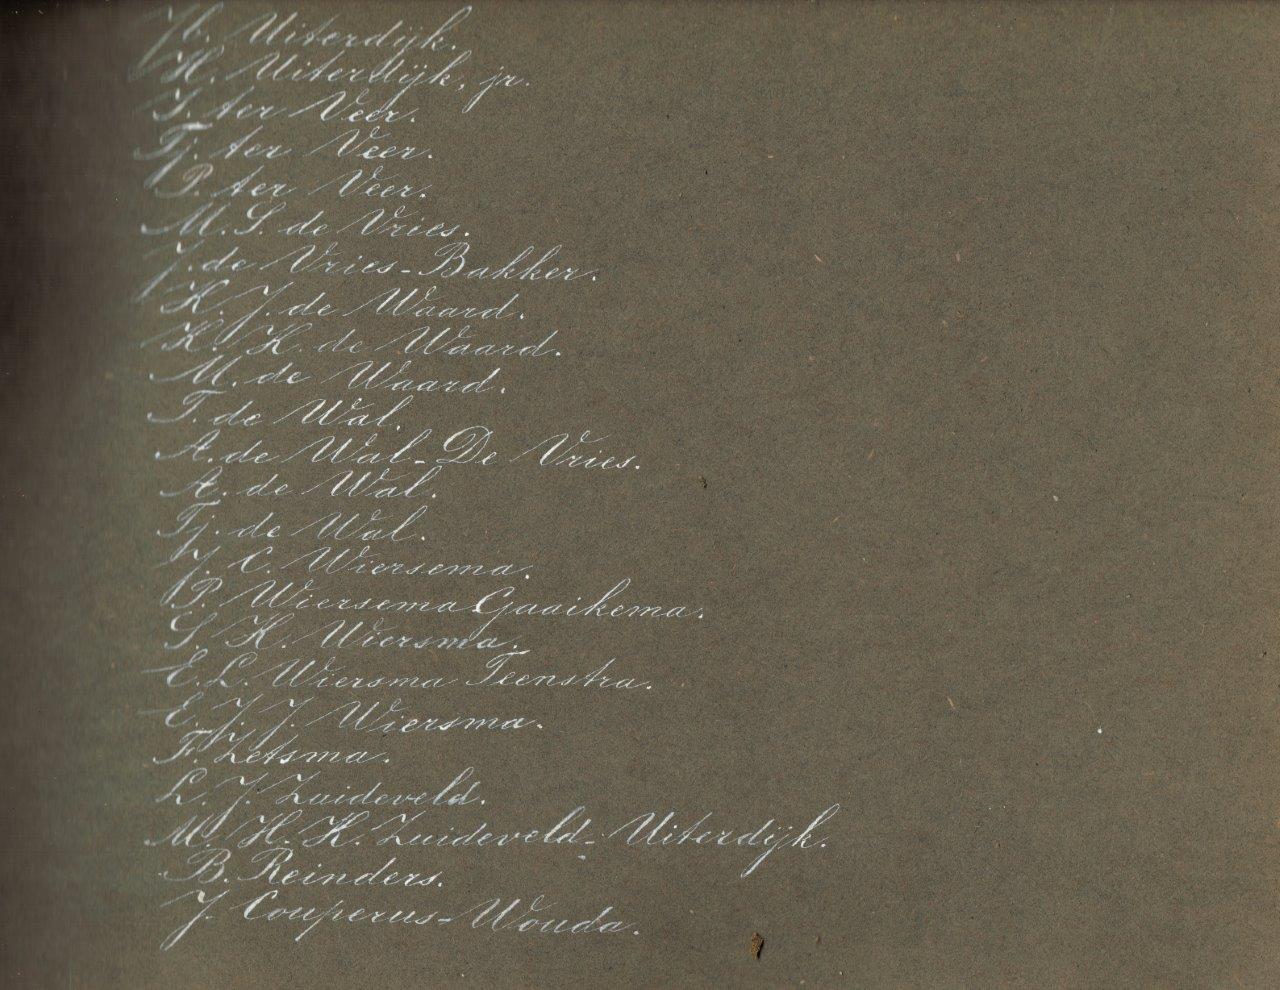 Jb. Uiterdijk.
K. Uiterdijk, jr.
S. ter Veer.
Tj. ter Veer.
P. ter Veer.
M. S. de Vries.
J. de Vries-Bakker.
K. J. de Waard.
K. K. de Waard.
M. de Waard.
T. de Wal.
A. de Wal-De Vries.
A. de Wal.
Tj. de Wal.
J. C. Wiersema.
P. Wiersema Gaaikema.
S. K. Wiersma.
E. L. Wiersma Teenstra.
E. J. J. Wiersma.
F. Zetsma.
L. J. Zuideveld.
M. H. K. Zuideveld-Uiterdijk.
B. Reinders.
J. Couperus-Wouda.